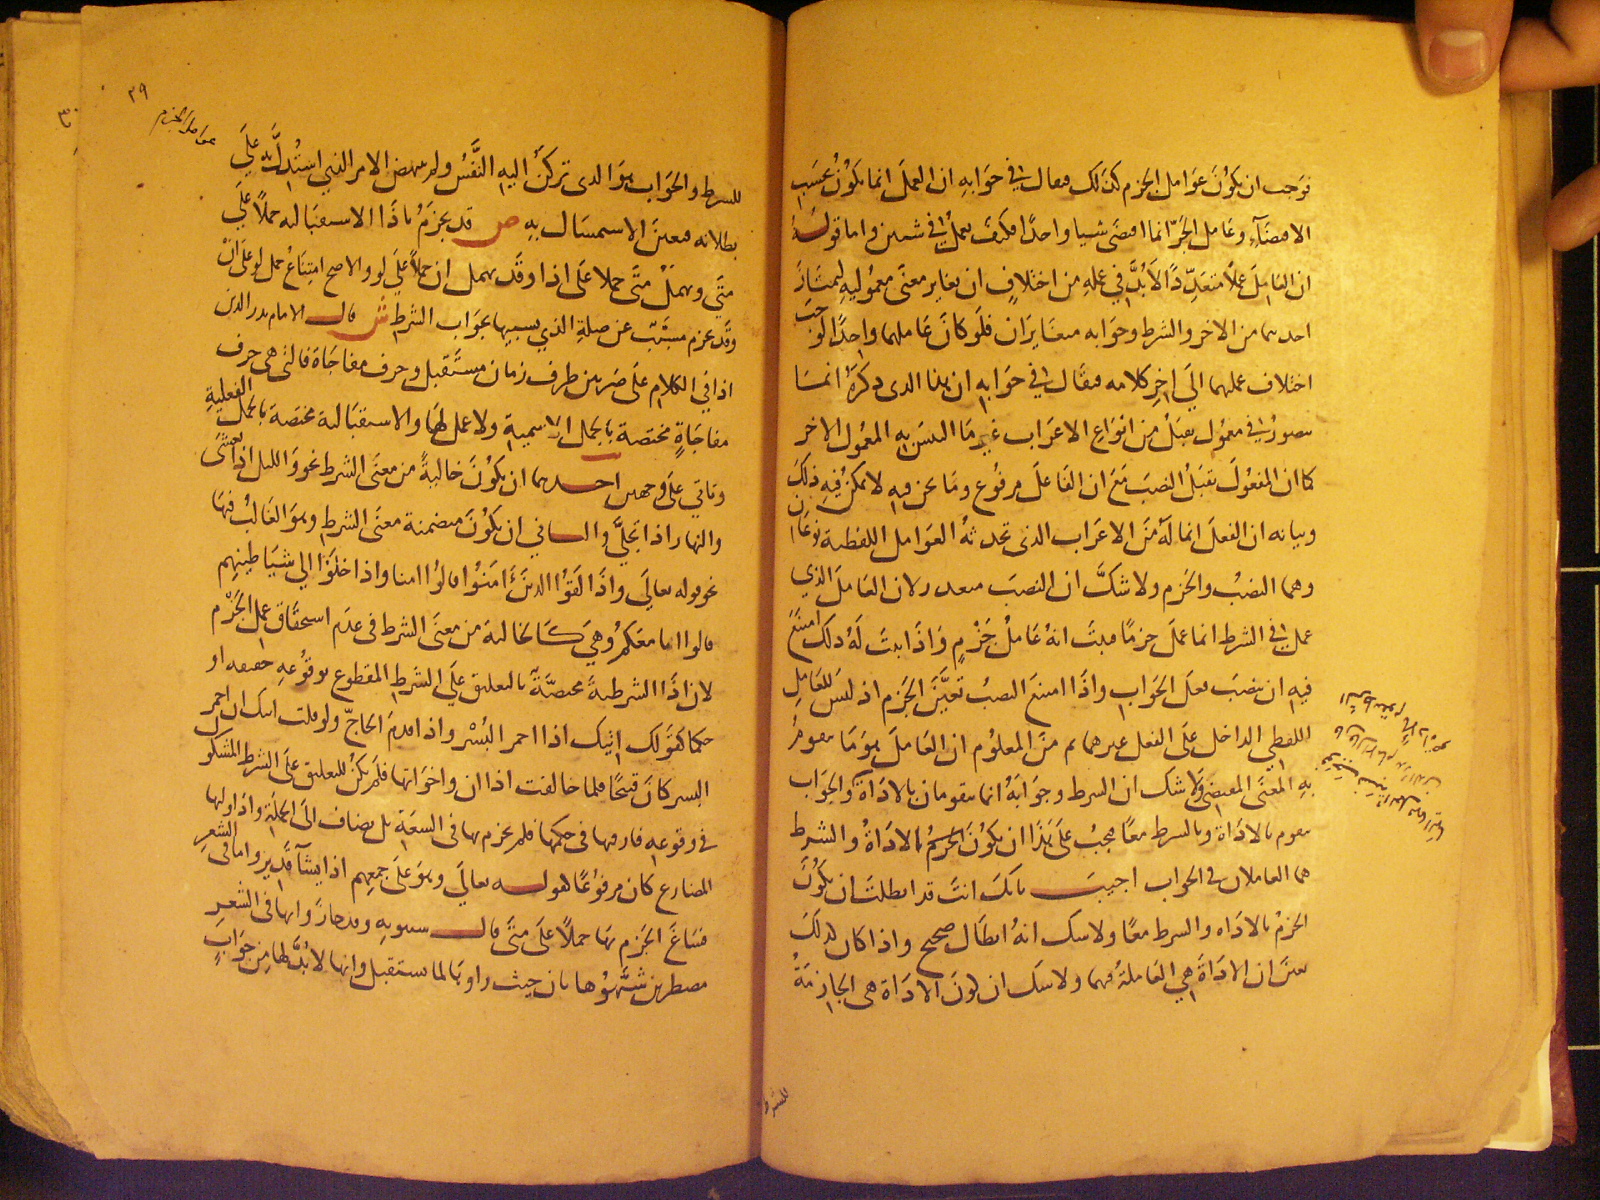 فوجب ان يكون عوامل الجزم كذلك فيقال في جوابه ان العمل انما يكون بحسب
الاقتضاء وعامل الجر انما اقتضى شيا واحدا فكيف يعمل في شيين واما قوله
ان العامل عملا متعددا لا بد في عمله من اختلاف ان تغاير معنى معموليه ليمتاز
احدهما من الاخر والشرط وجوابه متغايران فلو كان عاملهما واحدا لوجب
اختلاف عملهما الى اخر كلامه فيقال في جوابه ان هذا الذى ذكره انما
يتصور في معمول يقبل من انواع الاعراب غير ما التبس به المعمول الاخر
كما ان المفعول يقبل النصب مع ان الفاعل مرفوع وما نحن فيه لا يمكن فيه ذلك
وبيانه ان الفعل انما له من الاعراب الذى تحدثه العوامل اللفظية نوعان
وهما النصب والجزم ولا شك ان النصب متعذر لان العامل الذي
عمل في الشرط انما عمل جزما فيثبت انه عامل جزم واذا ثبت له ذلك امتنع
فيه ان ينصب فعل الجواب واذا امتنع النصب تعين الجزم اذ ليس للعامل
اللفظي الداخل على الفعل غيرهما ثم من المعلوم ان العامل هو ما يتقوم
به المعنى المقتضى ولا شك ان الشرط وجوابه انما يتقومان بالاداة والجواب
يتقوم بالاداة وبالشرط معا فيجب على هذا ان يكون الجزم بالاداة والشرط
هما العاملان في الجواب اجيب بانك انت قد ابطلت ان يكون
الجزم بالاداه والشرط معا ولا شك انه ابطال صحيح واذا كان كذلك
تعين ان الاداة هي العاملة فيهما ولا شك ان لون الاداة هى الجازمة
للشرط
عوامل الجزم
٢٩
للشرط والجواب هو الذى تركن اليه النفس ولم ينهض الامر الذي استدل به على
بطلانه فتعين الاستمساك به ص قد يجزم باذا الاستقبالية حملا على
متى وتهمل متى حملا على اذا وقد تهمل ان حملا على لو والاصح امتناع حمل لو على ان
وقد يجزم مسبب عن صلة الذي يسببها بجواب الشرط ش قال الامام بدر الدين
اذا في الكلام على ضربين ظرف زمان مستقبل وحرف مفاجاة فالتى هى حرف
مفاجاة مختصة بالجمل الاسمية ولا عمل لها والاستقبالية مختصة بالجمل الفعلية
وتاتي على وجهين احدهما ان يكون خالية من معنى الشرط نحو والليل اذا يغشى
والنهار اذا تجلى والثاني ان يكون متضمنة معنى الشرط وهو الغالب فيها
نحو قوله تعالى واذا لقوا الذين ءامنوا قالوا امنا واذا خلوا الي شياطينهم
قالوا انا معكم وهي كالخالية من معنى الشرط فى عدم استحقاق عمل الجزم
لان اذا الشرطية مختصة بالتعليق على الشرط المقطوع بوقوعه حقيقه او
حكما كقولك اتيك اذا احمر البسر واذا قدم الحاج ولو قلت اتيك ان احمر
البسر كان قبيحا فلما خالفت اذا ان واخواتها فلم يكن للتعليق على الشرط المشكوك
في وقوعه فارقتها فى حكمها فلم يجزم بها فى السعة بل يضاف الى الجملة واذا وليها
المضارع كان مرفوعا كقوله تعالى وهو على جمعهم اذا يشآ قدير واما فى الشعر
فشاع الجزم بها حملا على متى قال سيبويه وقد جازوا بها فى الشعر
مضطرين شبهوها بان حيث راوها لما يستقبل وانها لا بد لها من جواب